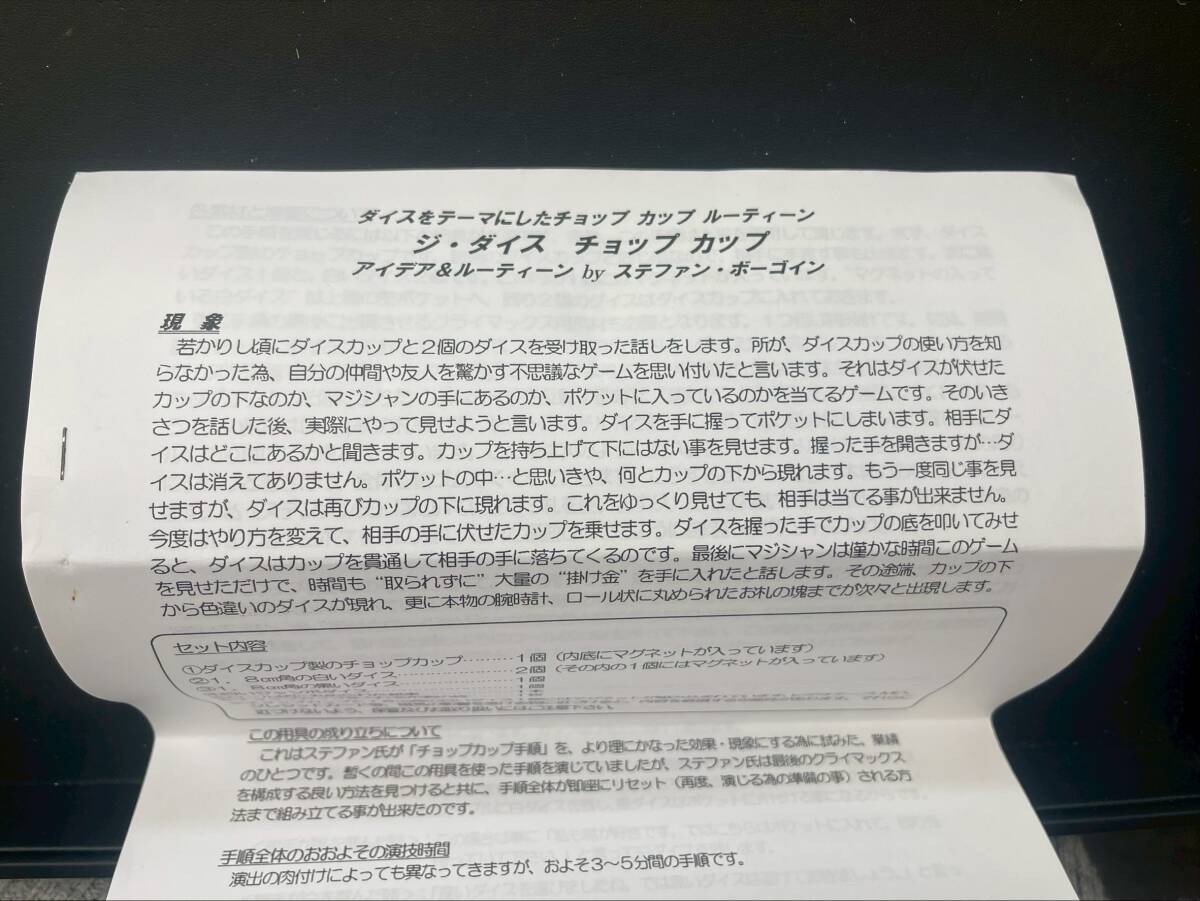 ダイスをテーマにしたチョップ カップ ルーティーン
ジ・ダイス チョップ カップ
アイデア＆ルーティーン by ステファン・ボーゴイン
現 象
若かりし頃にダイスカップと２個のダイスを受け取った話しをします。所が、ダイスカップの使い方を知
らなかった為、自分の仲間や友人を驚かす不思議なゲームを思い付いたと言います。それはダイスが伏せた
カップの下なのか、マジシャンの手にあるのか、ポケットに入っているのかを当てるゲームです。そのいき
さつを話した後、実際にやって見せようと言います。ダイスを手に握ってポケットにしまいます。相手にダ
イスはどこにあるかと聞きます。カップを持ち上げて下にはない事を見せます。握った手を開きますが…ダ
イスは消えてありません。ポケットの中…と思いきや、何とカップの下から現れます。もう一度同じ事を見
せますが、ダイスは再びカップの下に現れます。これをゆっくり見せても、相手は当てる事が出来ません。
今度はやり方を変えて、相手の手に伏せたカップを乗せます。ダイスを握った手でカップの底を叩いてみせ
ると、ダイスはカップを貫通して相手の手に落ちてくるのです。最後にマジシャンは僅かな時間このゲーム
を見せただけで、時間も“取られずに”大量の“掛け金”を手に入れたと話します。その途端、カップの下
から色違いのダイスが現れ、更に本物の腕時計、ロール状に丸められたお札の塊までが次々と出現します。
セット内容
①ダイスカップ製のチョップカップ………１個（内底にマグネットが入っています）
②１．８㎝角の白いダイス……………………２個（その内の１個にはマグネットが入っています）
③１．８㎝角の黒いダイス……………………１個
この用具の成り立ちについて
これはステファン氏が「チョップカップ手順」を、より理にかなった効果・現象にする為に試みた、業績
のひとつです。暫くの間この用具を使った手順を演じていましたが、ステファン氏は最後のクライマックス
を構成する良い方法を見つけると共に、手順全体が即座にリセット（再度、演じる為の準備の事）される方
法まで組み立てる事が出来たのです。
手順全体のおおよその演技時間
演出の肉付けによっても異なってきますが、およそ３～５分間の手順です。